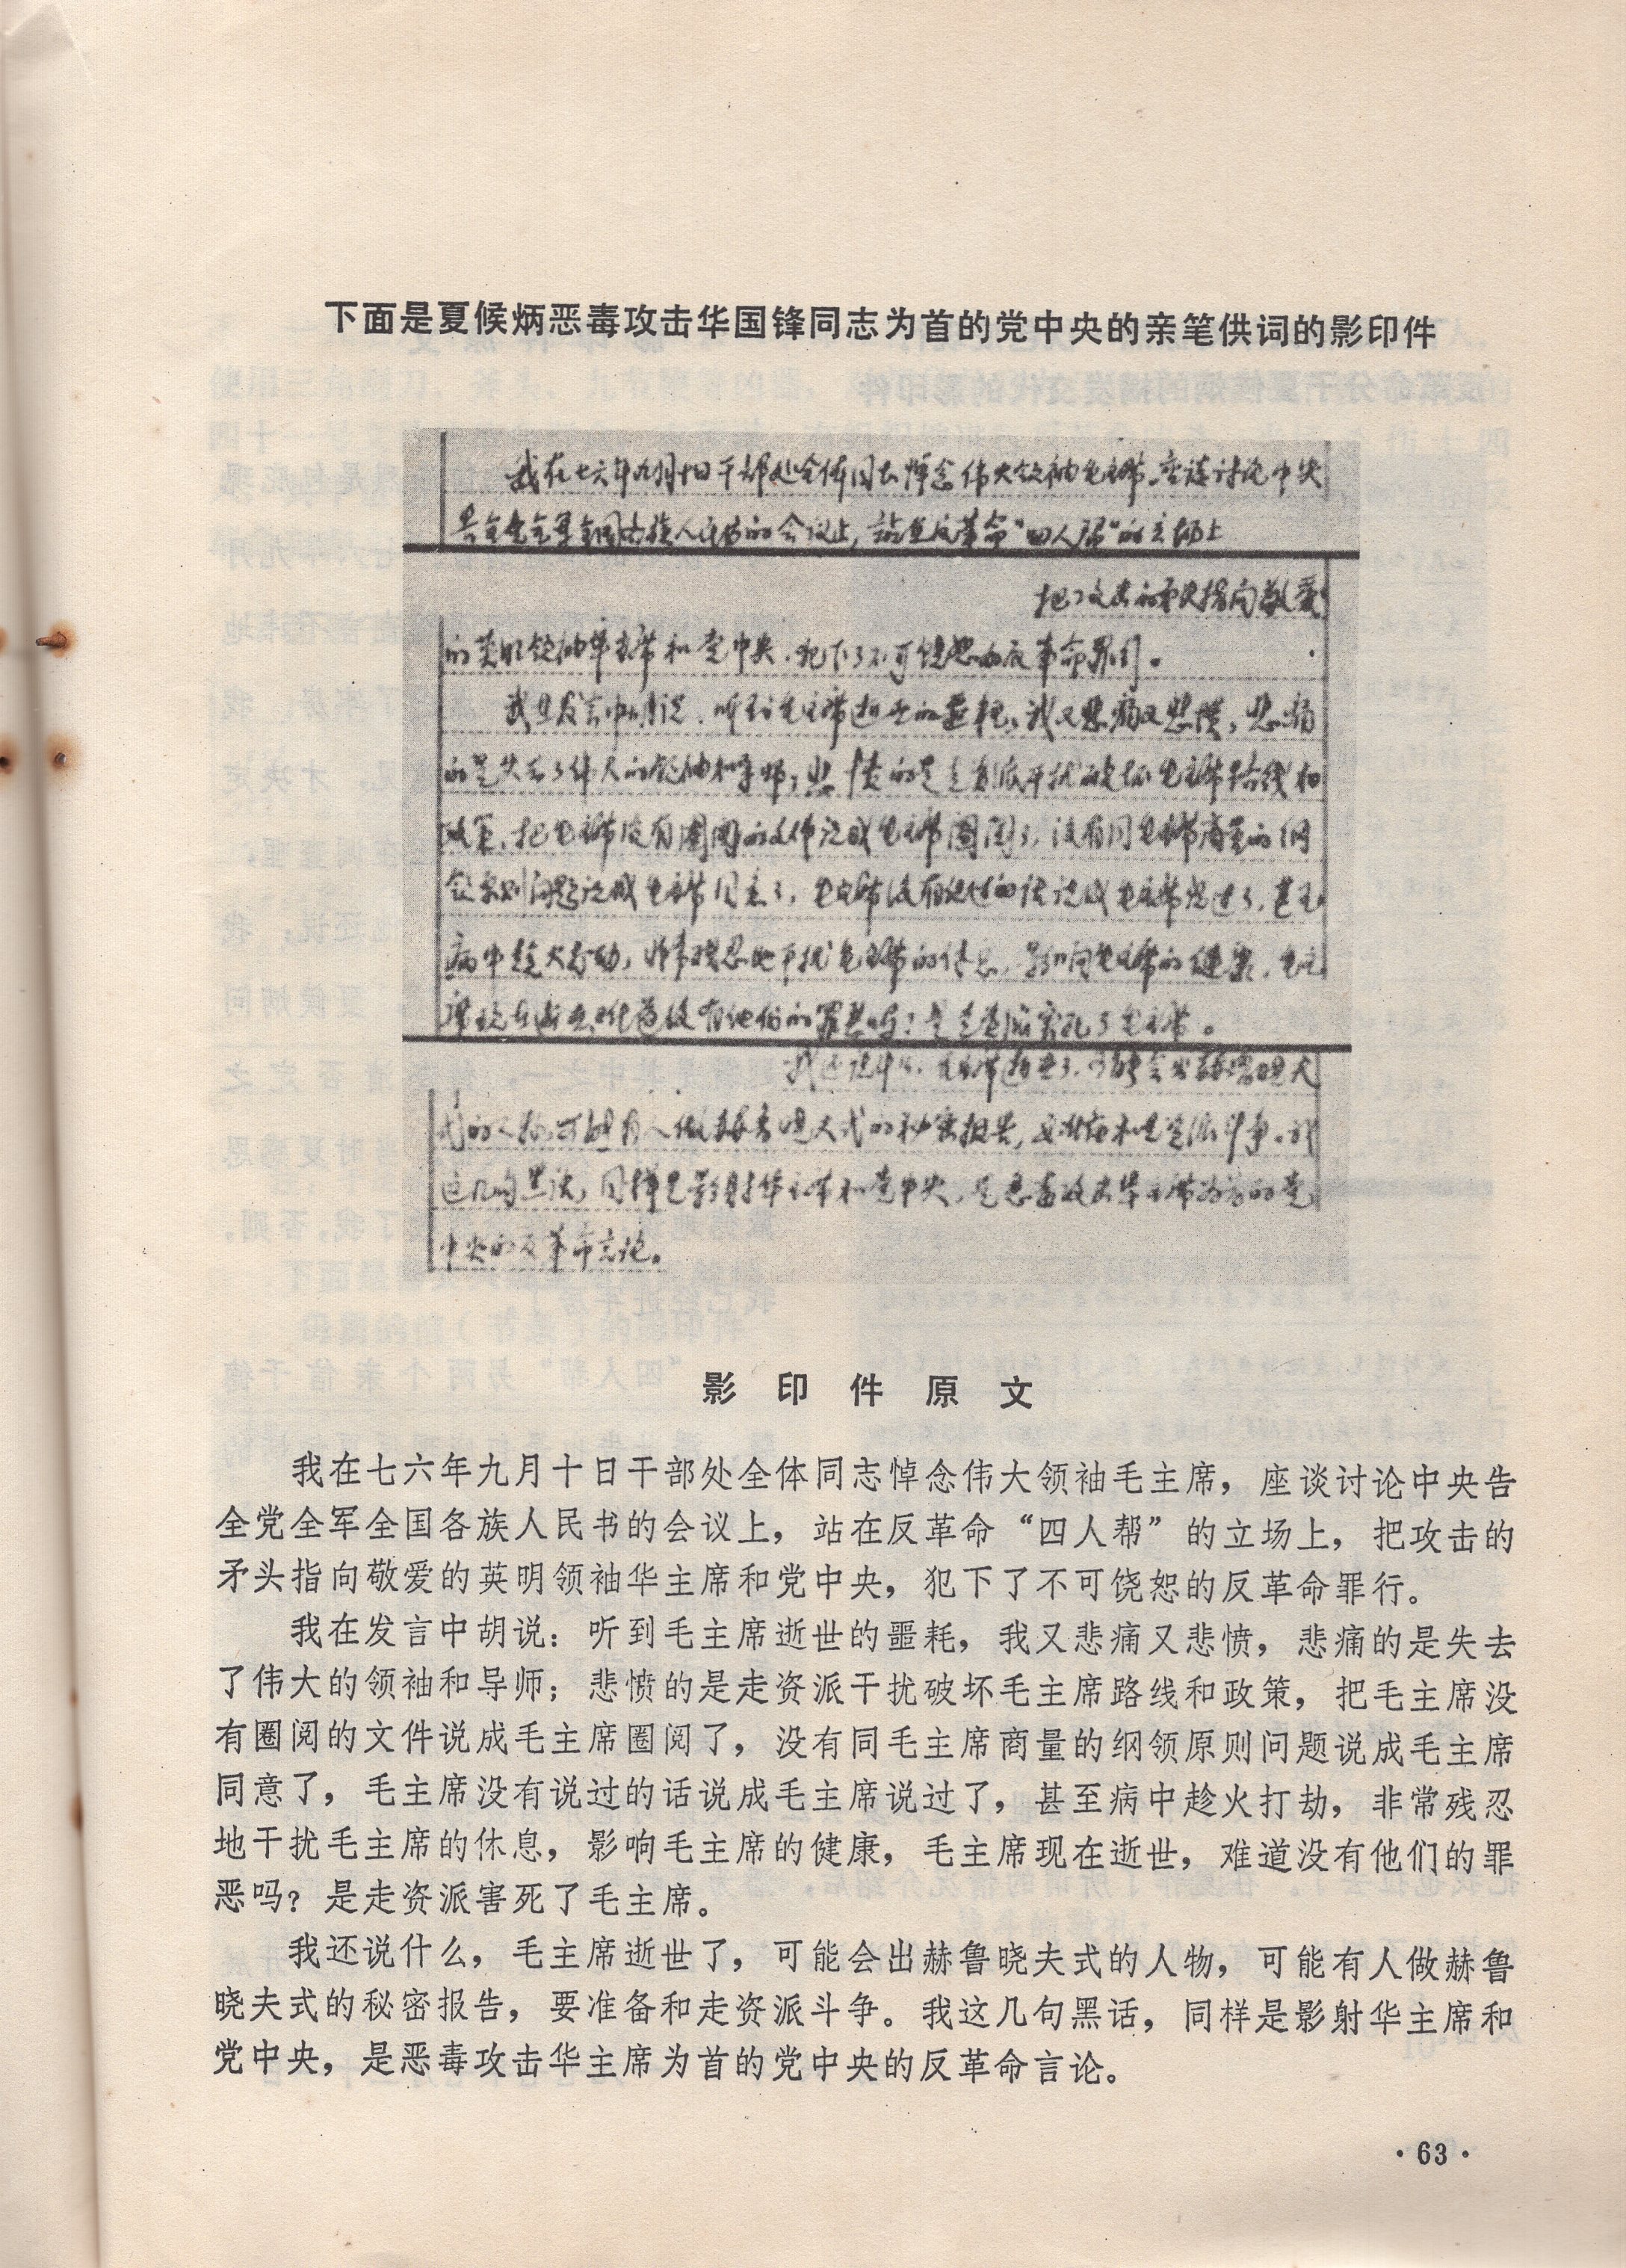 下面是夏候炳恶毒攻击华国锋同志为首的党中央的亲笔供词的影印件
我在七六年九月十日干部处全体同志悼念伟大领袖毛主席。座谈讨论中央
告全党全军全国各族人民书的会议上，站在反革命“四人帮”的立场上
把攻击的矛头指向敬爱
的英明领袖华主席和党中央，犯下了不可饶恕的反革命罪行。
我在发言中胡说，听到毛主席逝世的噩耗，我又悲痛又悲愤，悲痛
的是失去了伟大的领袖和导师；悲愤的是走资派干扰破坏毛主席路线和
政策，把毛主席没有圈阅的文件说成毛主席圈阅了，没有同毛主席商量的纲
领原则问题说成毛主席同意了，毛主席没有说过的话说成毛主席说过了，甚至
病中趁火打劫，非常残忍地干扰毛主席的休息，影响毛主席的健康，毛主
席现在逝世，难道没有他们的罪恶吗？是走资派害死了毛主席。
我还说什么，毛主席逝世了，可能会出赫鲁晓夫
式的人物，可能有人做赫鲁晓夫式的秘密报告，要准备和走资派斗争。我
这几句黑话，同样是影射华主席和党中央，是恶毒攻击华主席为首的党
中央的反革命言论。
影印件原文
我在七六年九月十日干部处全体同志悼念伟大领袖毛主席，座谈讨论中央告
全党全军全国各族人民书的会议上，站在反革命“四人帮”的立场上，把攻击的
矛头指向敬爱的英明领袖华主席和党中央，犯下了不可饶恕的反革命罪行。
我在发言中胡说：听到毛主席逝世的噩耗，我又悲痛又悲愤，悲痛的是失去
了伟大的领袖和导师；悲愤的是走资派干扰破坏毛主席路线和政策，把毛主席没
有圈阅的文件说成毛主席圈阅了，没有同毛主席商量的纲领原则问题说成毛主席
同意了，毛主席没有说过的话说成毛主席说过了，甚至病中趁火打劫，非常残忍
地干扰毛主席的休息，影响毛主席的健康，毛主席现在逝世，难道没有他们的罪
恶吗？是走资派害死了毛主席。
我还说什么，毛主席逝世了，可能会出赫鲁晓夫式的人物，可能有人做赫鲁
晓夫式的秘密报告，要准备和走资派斗争。我这几句黑话，同样是影射华主席和
党中央，是恶毒攻击华主席为首的党中央的反革命言论。
·63·